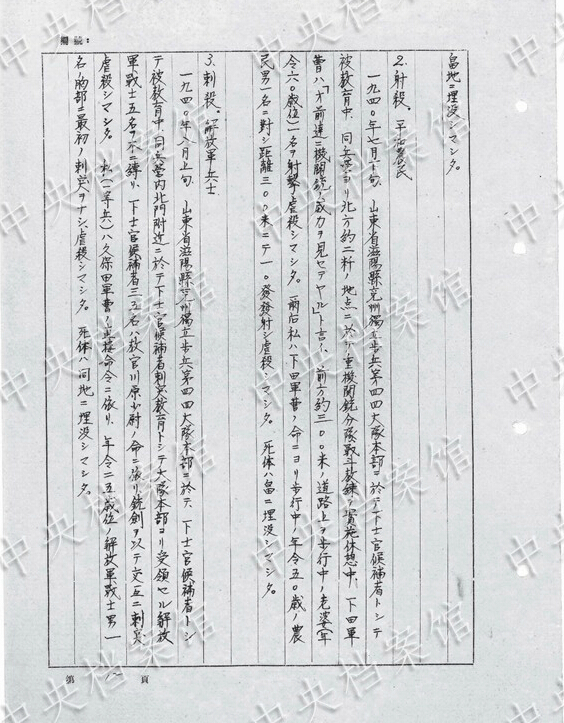 編號:
畠地ニ埋没シマシタ。
2. 射殺。平和農民
一九四〇年七月下旬、山東省滋陽縣兗州獨立歩兵第四四大隊本部ニ於テ下士官候補者トシテ
被教育中、同兵營ヨリ北方約二粁ノ地点ニ於テ重機関銃分隊戰斗教練ノ實施休憩中、下田軍
曹ハ「オ前達ニ機関銃ノ威力ヲ見セテヤル」ト言ヒ、前方約三〇〇米ノ道路上ヲ歩行中ノ老婆(年
令六〇歳位)一名ヲ射撃虐殺シマシタ。一爾后私ハ下田軍曹ノ命ニヨリ歩行中ノ年令五〇歳ノ農
民男一名ニ對シ距離三〇〇米ニテ一〇發發射シ虐殺シマシタ。死体ハ畠ニ埋没シマシタ。
3. 刺殺。解放軍兵士
一九四〇年八月上旬、山東省滋陽縣兗州獨立歩兵第四四大隊本部ニ於テ、下士官候補者トシ
テ被教育中、同兵營内北門附近ニ於テ下士官候補者刺突教育トシテ大隊本部ヨリ受領セル解放
軍戰士五名ヲ木ニ縛リ、下士官候補者三五名ハ教官川原少尉ノ命ニ依リ銃劍ヲ以テ交互ニ刺突
虐殺シマシタ。私(一等兵)ハ久保田軍曹ノ直接命令ニ依リ、年令二五歳位ノ解放軍戰士男一
名ノ胸部ニ最初ノ刺突ヲナシ虐殺シマシタ。死体ハ同地ニ埋没シマシタ。
第 頁
中央档案馆